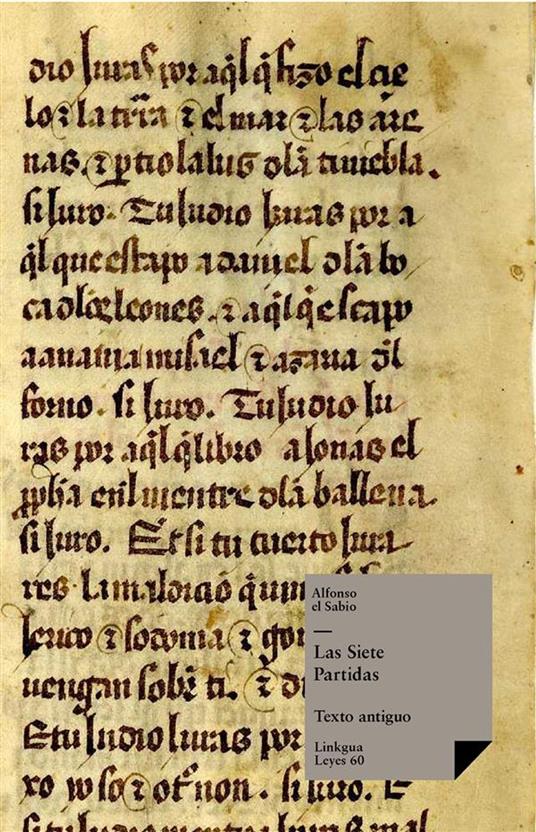 dio iuras por aq̃l q̃ fizo el cie
lo ⁊ la tr̃ra ⁊ el mar ⁊ las are
nas. ⁊ p̃tio la lus dl̃a tiniebla.
si iuro. Tu iudio iuras por a
q̃l que escapo a daniel dl̃a bo
ca dlos leones. ⁊ aq̃l q̃ escapo
a anania misael ⁊ azaria dl̃
forno. si iuro. Tu iudio iu
ras por aq̃l q̃ libro a ionas el
pp̃ha enl uientre dl̃a ballena.
si iuro. Et si tu tuerto iura
res. la maldiçió q̃
⁊ sodoma ⁊
uengan sobr̃ ti. ⁊
Et tu iudio iuras por
xo yo so ⁊ otr̃ non. si iuro. E
si tu iudio
Alfonso
el Sabio
—
Las Siete
Partidas
Texto antiguo
Linkgua
Leyes 60